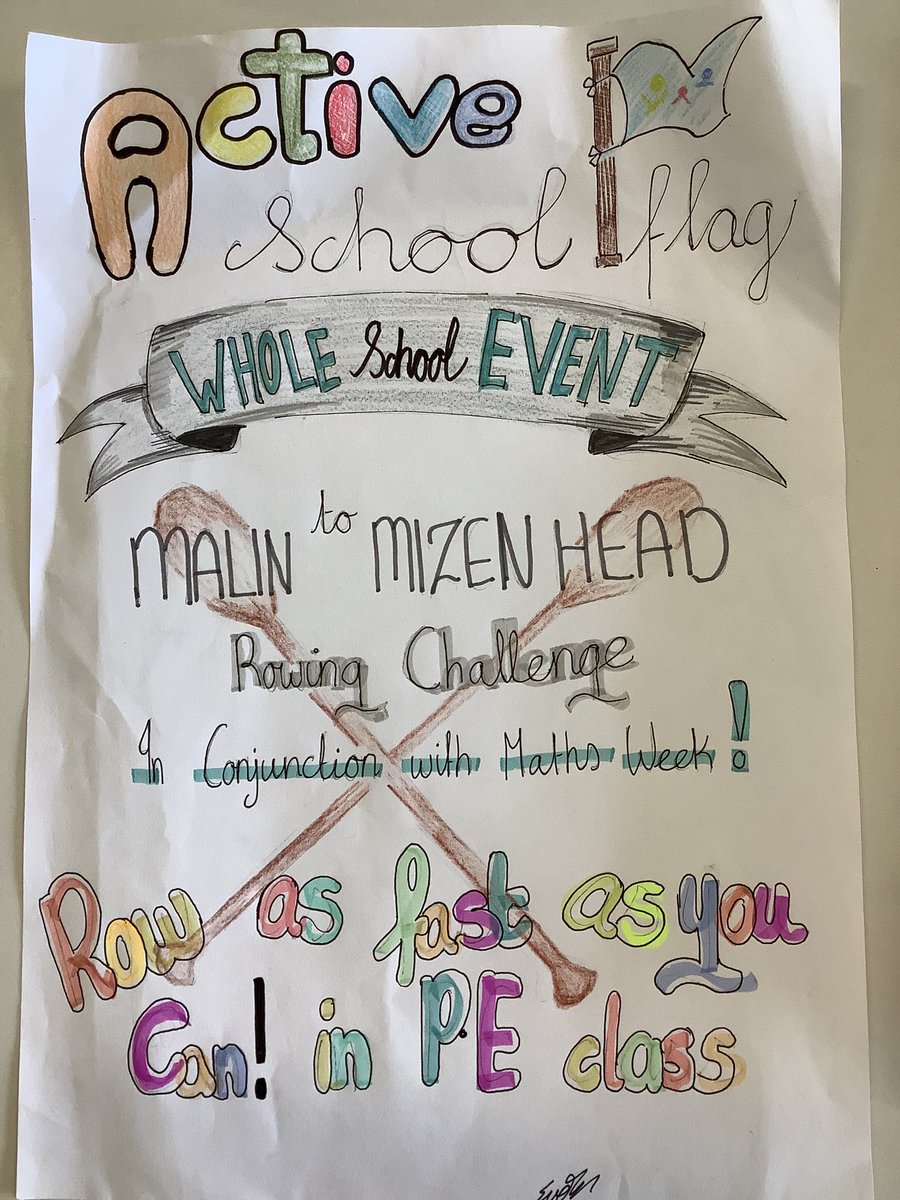 Active
School flag
WHOLE School EVENT
MALIN to MIZEN HEAD
Rowing Challenge
In Conjunction with Maths Week!
Row as fast as you
Can! in P.E class